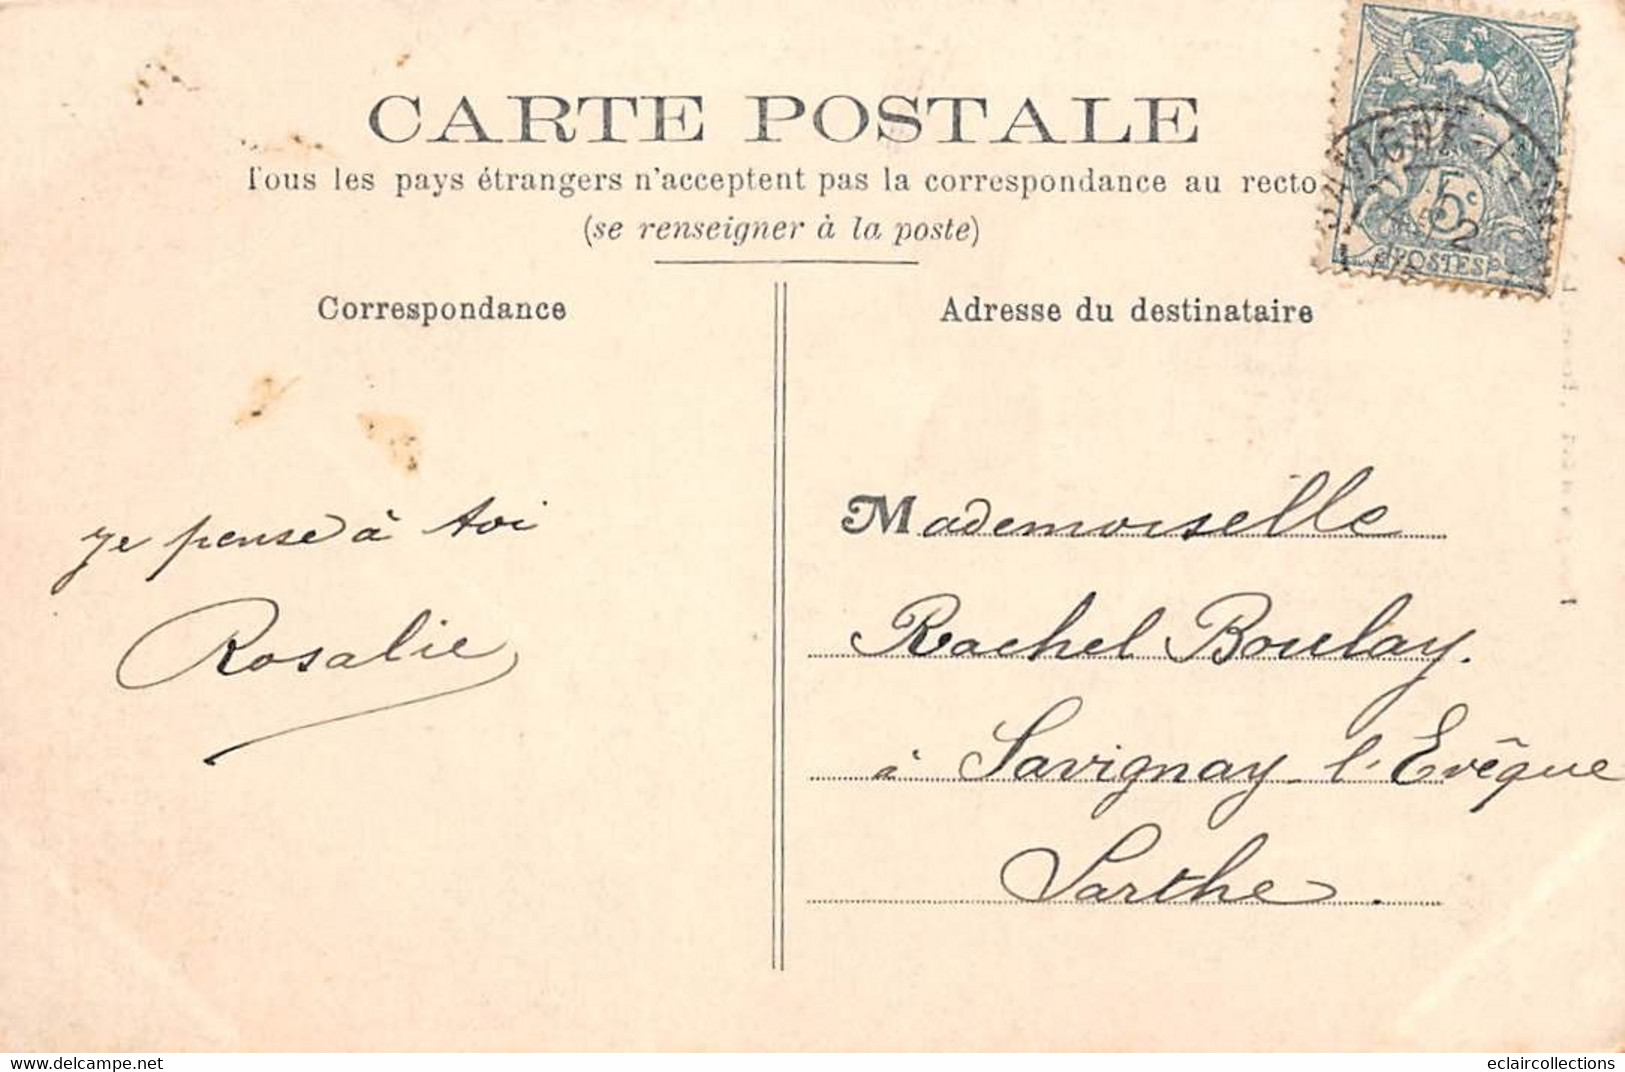 CARTE POSTALE
Tous les pays étrangers n'acceptent pas la correspondance au recto
(se renseigner à la poste)
Correspondance
Adresse du destinataire
5c
POSTES
je pense à toi
Rosalie
Mademoiselle
Rachel Boulay.
à Savignay l'Evêque
Sarthe.
www.delcampe.net
eclaircollections